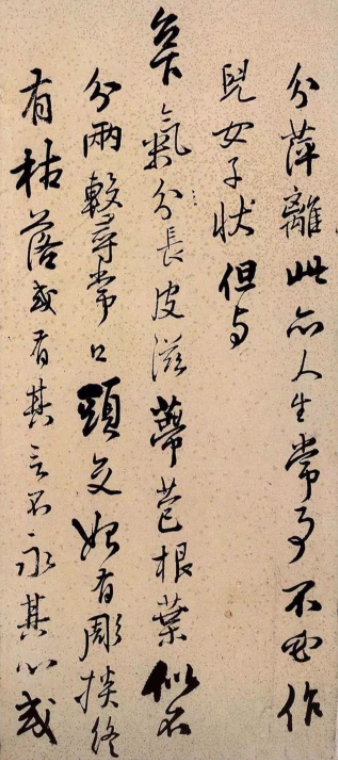 分萍離此亦人生常事不必作
兒女子狀但与
台下氣分長皮滋蒂苞根葉似不
分兩尋常口頭交始有彫掞終
有枯落或有其言不永其心或